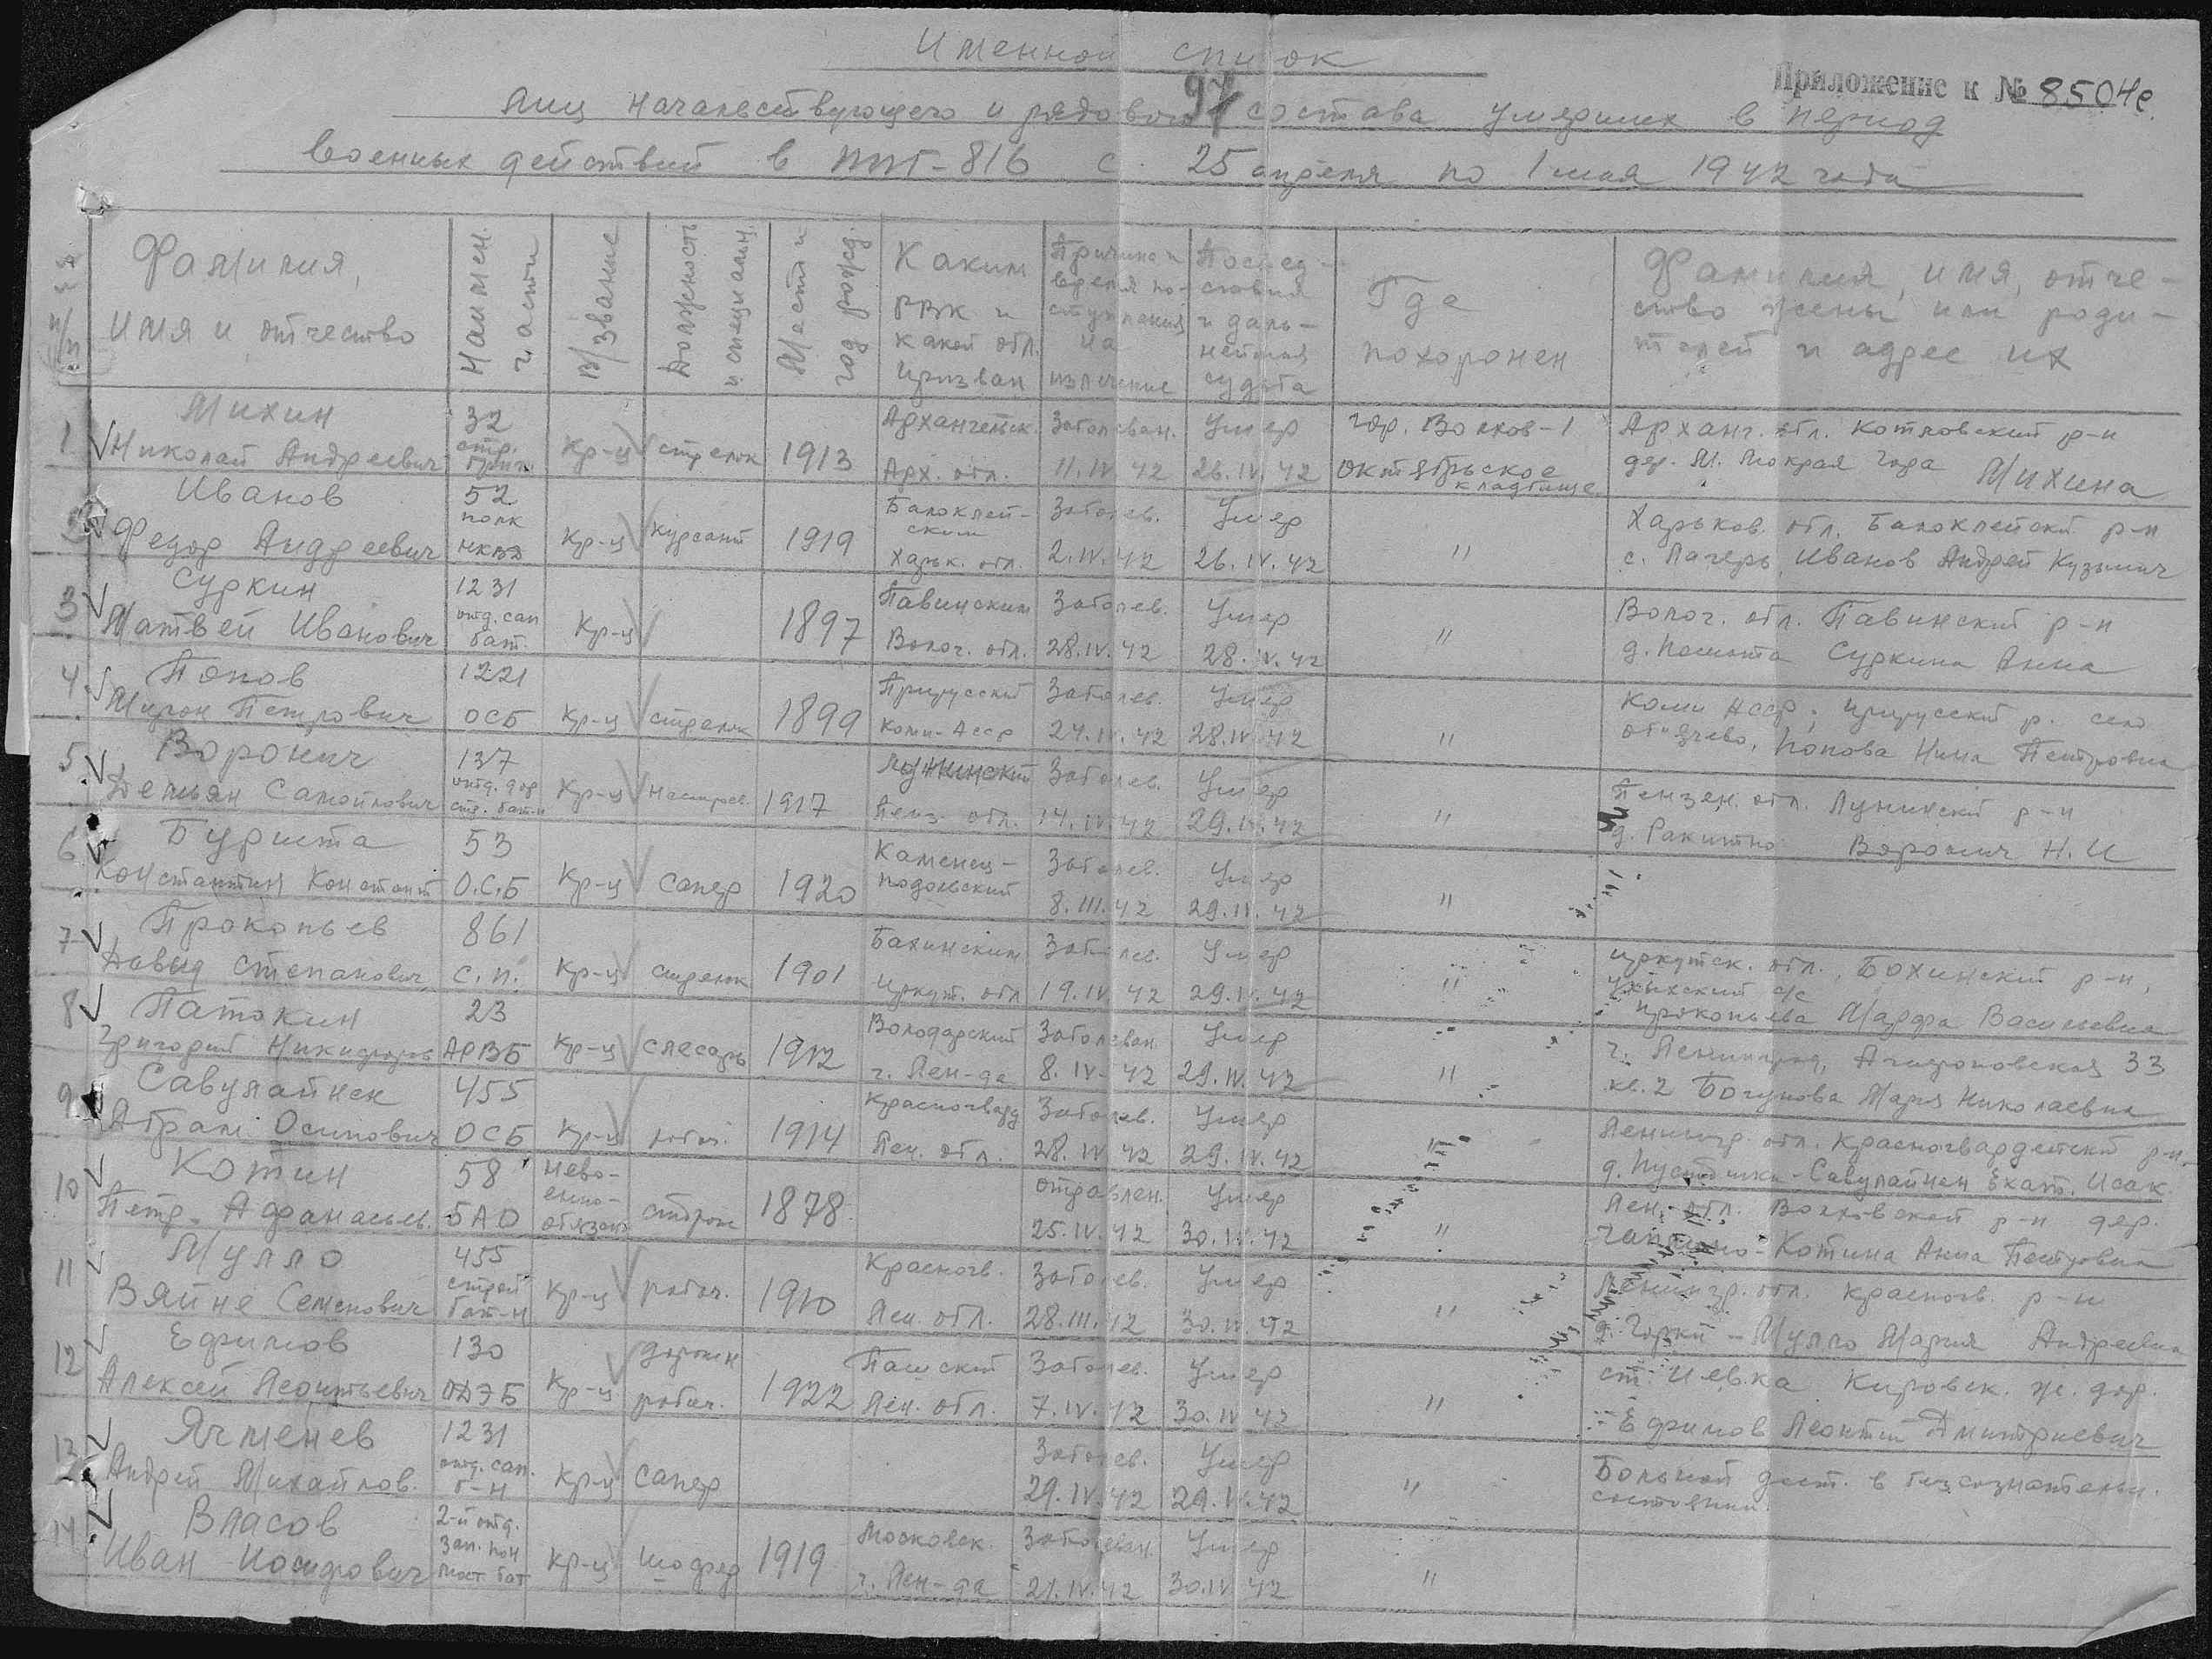 Именной список
97
Приложение к № 8504с
лиц начальствующего и рядового состава умерших в период
военных действий в ППГ-816 с 25 апреля по 1 мая 1942 года
№№ п/п
Фамилия, имя и отчество
Наимен. части
В/звание
Должность и специальн.
Место и год рожд.
Каким РВК и какой обл. призван
Причина и время поступления на излечение
Последствия и дальнейшая судьба
Где похоронен
Фамилия, имя, отчество жены или родителей и адрес их
1 Михин Николай Андреевич 32 стр. бриг. Кр-ц стрелок 1913 Архангельск. Арх. обл. Заболеван. 11.IV.42 Умер 26.IV.42 гор. Волхов-1 октябрьское кладбище Арханг. обл. Котловский р-н дер. М. Мокрая Гора Михина
Иванов Федор Андреевич 52 полк НКВД Кр-ц курсант 1919 Балоклейским Харьк. обл. Заболев. 2.IV.42 Умер 26.IV.42 " Харьков. обл. Балоклейский р-н с. Лагерь Иванов Андрей Кузьмич
3 Суркин Матвей Иванович 1231 отд. сап бат. Кр-ц 1897 Павинским Волог. обл. Заболев. 28.IV.42 Умер 28.IV.42 " Волог. обл. Павинский р-н д. Суркина Анна
4 Попов Мирон Петрович 1221 ОСБ Кр-ц стрелок 1899 Прилузский Коми-Асср Заболев. 24.IV.42 Умер 28.IV.42 " Коми Асср, прилузский р. село объячево, Попова Нина Петровна
5 Воронич Демьян Самойлович 137 отд. дор стр. бат-н Кр-ц 1917 Лунинский Пенз. обл. Заболев. 14.IV.42 Умер 29.IV.42 " Пензен. обл. Лунинский р-н д. Ракитно Воронич Н. И
6 Бурита Константин Констант 53 О.С.Б Кр-ц сапер 1920 Каменец-подольский Заболев. 8.III.42 Умер 29.IV.42 "
7 Прокопьев Давыд Степанович 861 с.п. Кр-ц стрелок 1901 Бахинским Иркут. обл Заболев. 19.IV.42 Умер 29.IV.42 " Иркутск. обл., Бохинский р-н, с/с Прокопьева Марфа Васильевна
8 Патокин Григорий Никифоров 23 АРВБ Кр-ц слесарь 1912 Володарский г. Лен-да Заболеван 8.IV.42 Умер 29.IV.42 " г. Ленинград, 33 кв. 2 Богунова Мария Николаевна
9 Савулайнен Абрам Осипович 455 ОСБ Кр-ц рабоч. 1914 Красногвард Лен. обл. Заболев. 28.IV.42 Умер 29.IV.42 " Ленингр. обл. Красногвардейский р-н. д. Пустошка - Савулайнен Екат. Исак.
10 Котин Петр. Афанасьев. 58 БАО невоеннообязан сторож 1878 отравлен. 25.IV.42 Умер 30.IV.42 " Лен. обл. Волховской р-н дер. Котина Анна Петровна
11 Мулло Вяйне Семенович 455 строй бат-н Кр-ц рабоч. 1910 Красногв. Лен. обл. Заболев. 28.III.42 Умер 30.IV.42 " Ленингр. обл. Красногв. р-н д. Горки - Мулло Мария Андреевна
12 Ефимов Алексей Леонтьевич 130 ОДЭБ Кр-ц дорожн рабоч. 1922 Пашский Лен. обл. Заболев. 7.IV.42 Умер 30.IV.42 " ст. Кировск. ж. дор. Ефимов Леонтий Дмитриевич
13 Ячменев Андрей Михайлов. 1231 отд. сап. б-н Кр-ц сапер Заболев. 29.IV.42 Умер 29.IV.42 " Больной дост. в безсознательн. состоянии.
14 Власов Иван Иосифович 2-й отд. зап. пон мост бат Кр-ц шофер 1919 Московск. г. Лен-да Заболеван. 21.IV.42 Умер 30.IV.42 "